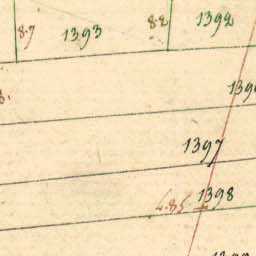 8.7 1393 8.2 1392
1397
4.85 1398